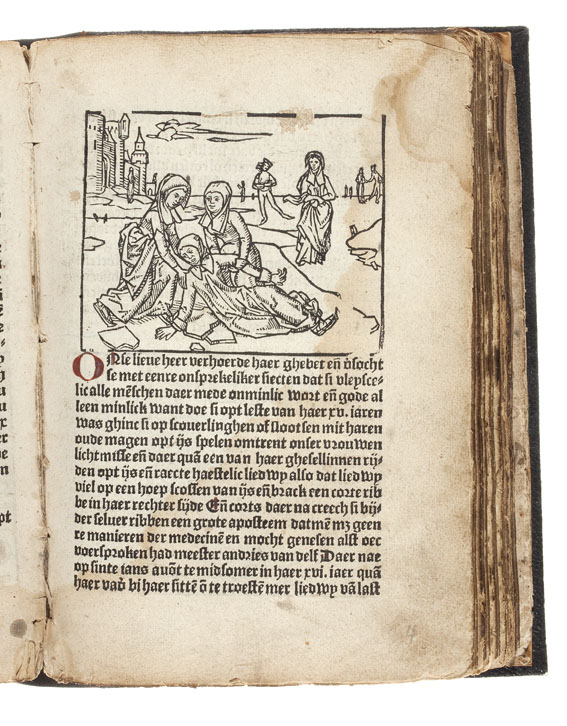 ONse lieue heer verhoerde haer ghebet eñ v̄socht
se met eenre onsprekeliker siecten dat si vleysce-
lic alle mēschen daer mede onminlic wort eñ gode al
leen minlick want doe si opt leste van haer xv. iaren
was ghinc si op scouerlinghen of scootsen mit haren
oude magen opt ijs spelen omtrent onser vrouwen
lichtmisse eñ daer quā een van haer ghesellinnen rij-
den opt ijs eñ raecte haestelic liedwy also dat liedwy
viel op een hoep scossen van ijs eñ brack een corte rib
be in haer rechter sijde Eñ corts daer na creech si bij-
der seluer ribben een grote aposteem datmē mz geen
re manieren der medecinē en mocht genesen alst oec
voersproken had meester andries van delf Daer nae
op sinte ians auōt te midsomer in haer xvi. iaer quā
haer vad̄ bi haer sittē ō te troestē mer liedwy vā last
e
u
u
x
er
be
n
pt